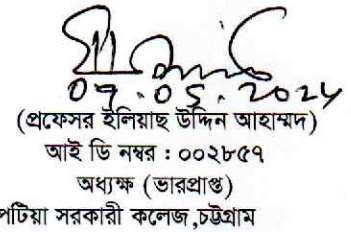 07.05.2024
(প্রফেসর ইলিয়াছ উদ্দিন আহাম্মদ)
আই ডি নম্বর : ০০২৮৫৭
অধ্যক্ষ (ভারপ্রাপ্ত)
পটিয়া সরকারী কলেজ,চট্টগ্রাম